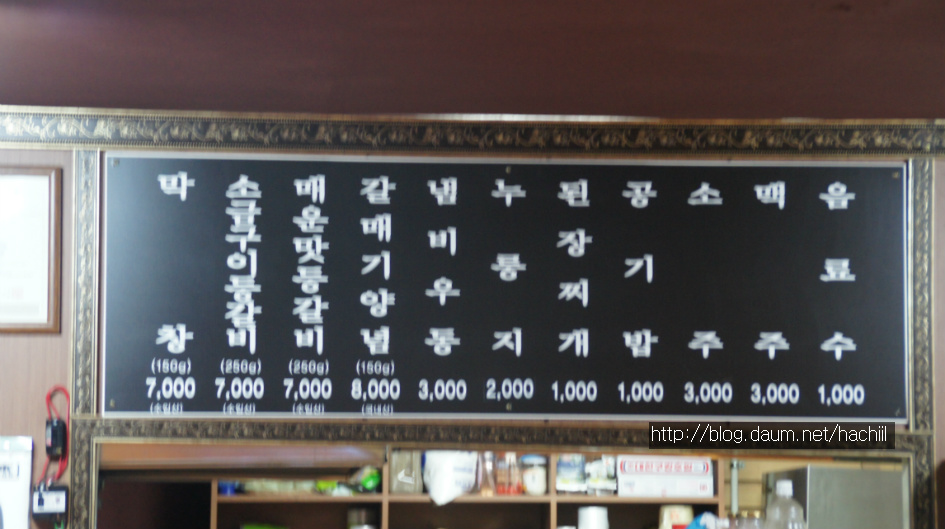 막창
(150g)
7,000
(수입산)
소금구이등갈비
(250g)
7,000
(수입산)
매운맛등갈비
(250g)
7,000
(수입산)
갈매기양념
(150g)
8,000
(국내산)
냄비우동
3,000
누룽지
2,000
된장찌개
1,000
공기밥
1,000
소주
3,000
맥주
3,000
음료수
1,000
http://blog.daum.net/hachiil